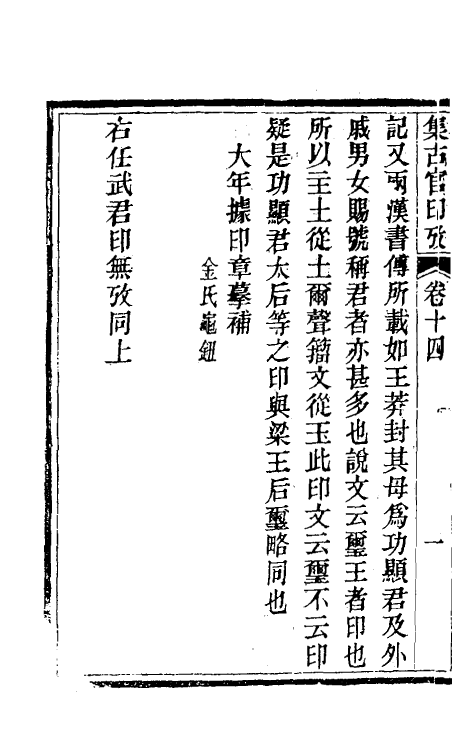 集古官印攷 卷十四 一
記又兩漢書傳所載如王莽封其母爲功顯君及外
戚男女賜號稱君者亦甚多也說文云璽王者印也
所以主土從土爾聲籀文從玉此印文云璽不云印
疑是功顯君太后等之印與梁王后璽略同也
大年據印章摹補
金氏龜鈕
右任武君印無攷同上